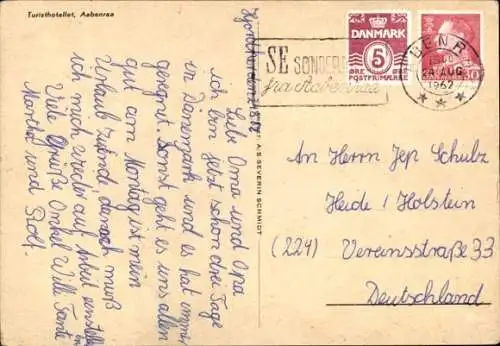 Turisthotellet, Aabenraa
Liebe Oma und Opa
ich bin jetzt schon drei Tage
in Dänemark und es hat immer
geregnet. Sonst geht es uns allen
gut am Montag ist mein
Urlaub zu danach muß
ich mich wieder auf Arbeit einstellen
Viele Grüße Onkel Willi Tante
Martha und Rolf.
A.S. SEVERIN SCHMIDT
DANMARK
5
ØRE ØRE
POSTFRIMÆRKE
SE SØNDERJ
fra Aabenraa
BENR
24 AUG
1962
An Herrn Jep Schulz
Heide / Holstein
(224) Vereinsstraße 33
Deutschland